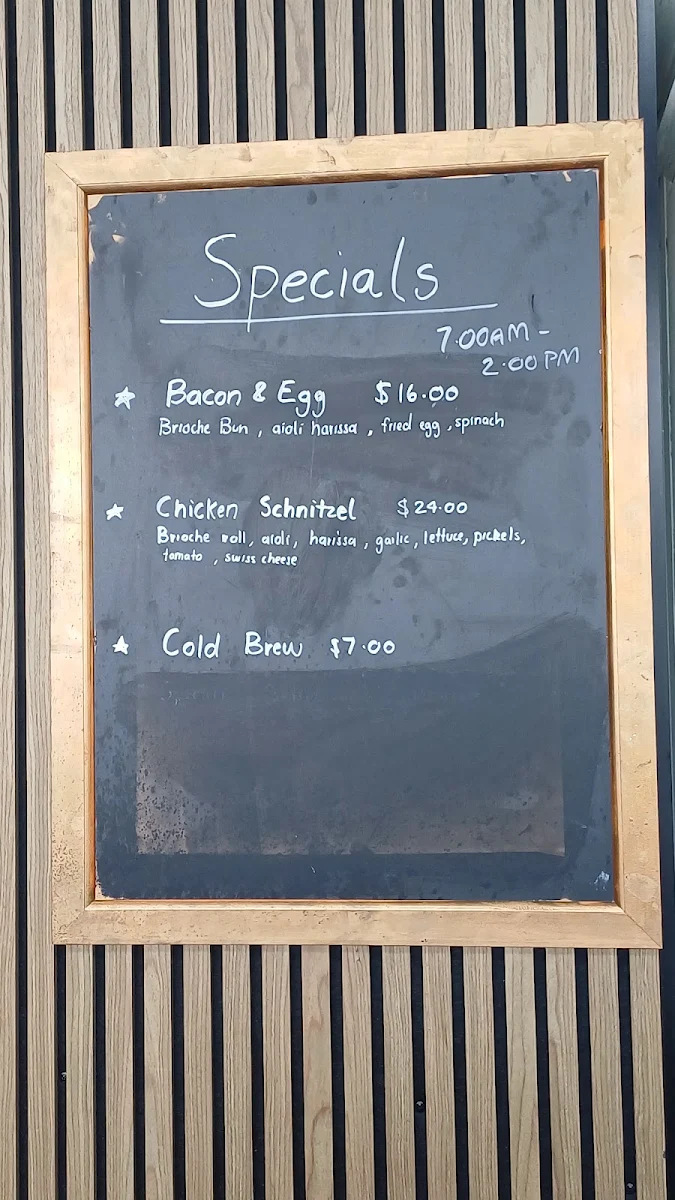 Specials
7.00AM -
2.00 PM
Bacon & Egg $16.00
Brioche Bun, aioli harissa, fried egg, spinach
Chicken Schnitzel $24.00
Brioche roll, aioli, harissa, garlic, lettuce, pickels,
tomato, swiss cheese
Cold Brew $7.00